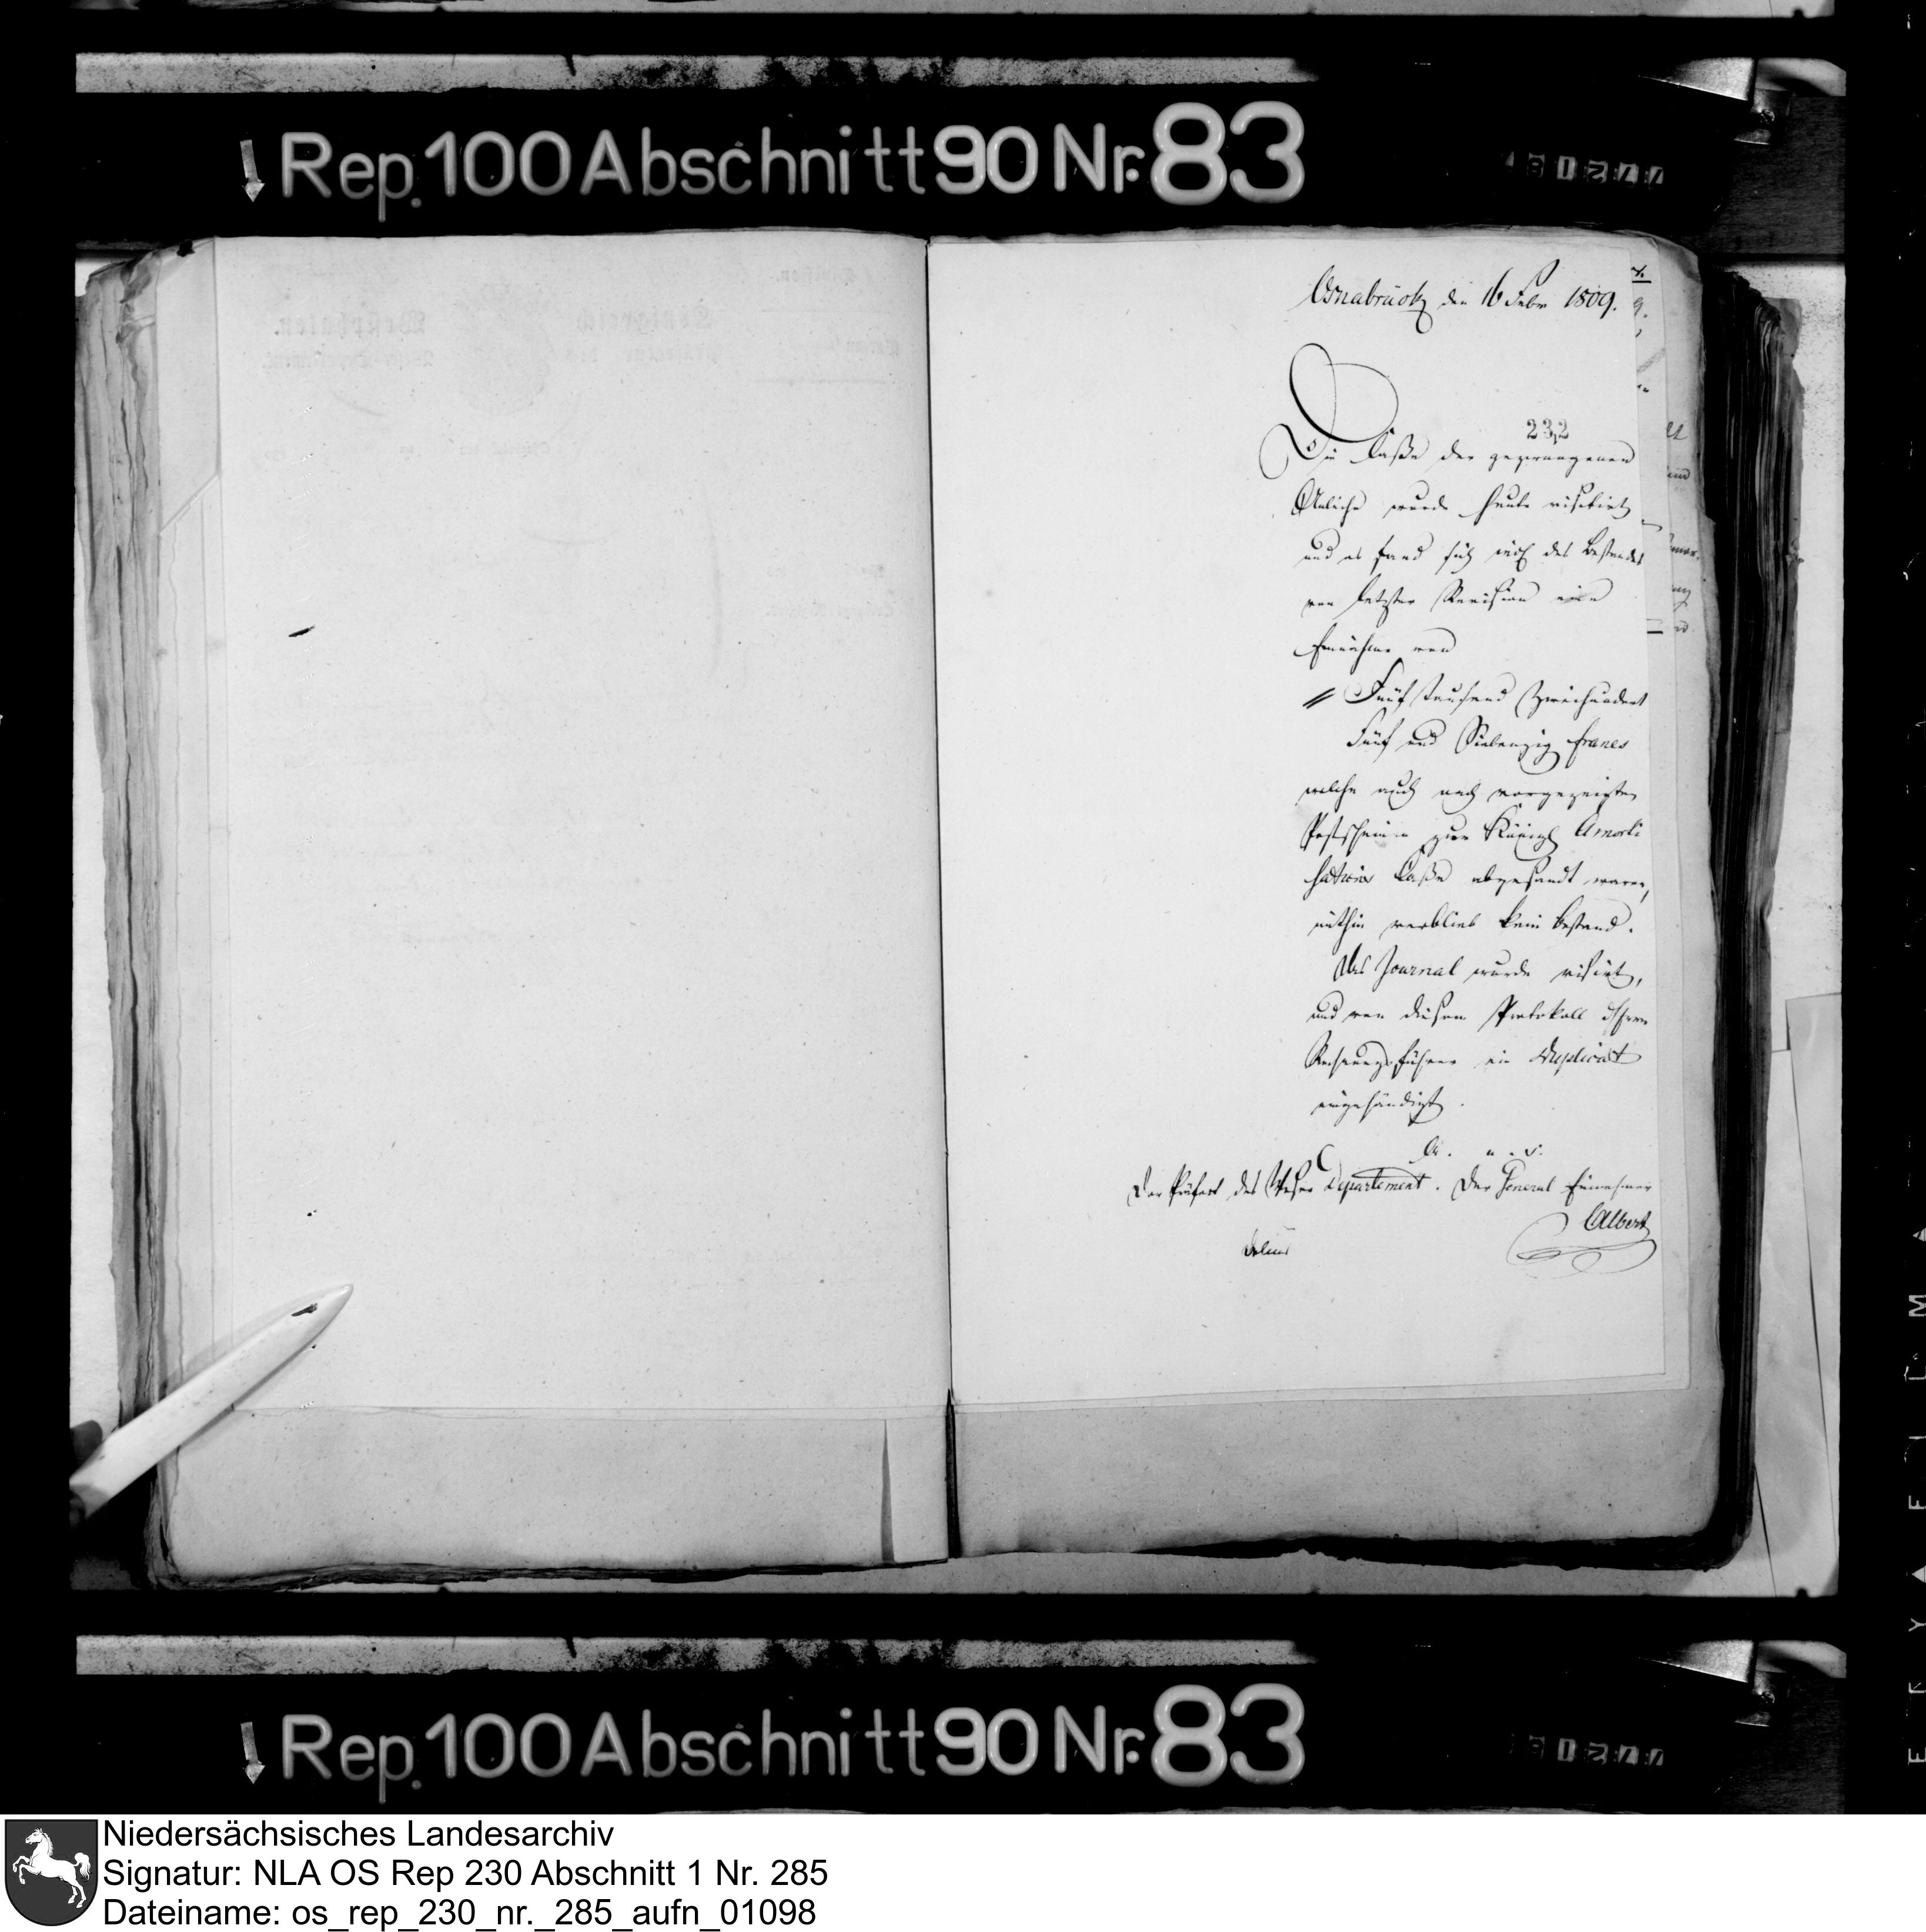 Rep. 100 Abschnitt 90 Nr. 83
Osnabrück den 16 Febr 1809.
232
Die Casse der gezwungenen
Anleihe wurde heute visitirt
und es fand sich incl. des Bestandes
von letzter Revision eine
Einnahme von
Fünf tausend Zweihundert
Fünf und Siebenzig francs
welche auch nach vorgezeigten
Postscheinen zur Königl Amorti
sations Casse abgesandt waren,
mithin verblieb kein Bestand.
Das Journal wurde visirt,
und von diesem Protokoll
Rechnungsführer ein Duplicat
eingehändigt.
A. u. s.
Der Präfect des Weser Departement. Der General Einnehmer
Albert
Delius
Rep. 100 Abschnitt 90 Nr. 83
Niedersächsisches Landesarchiv
Signatur: NLA OS Rep 230 Abschnitt 1 Nr. 285
Dateiname: os_rep_230_nr._285_aufn_01098